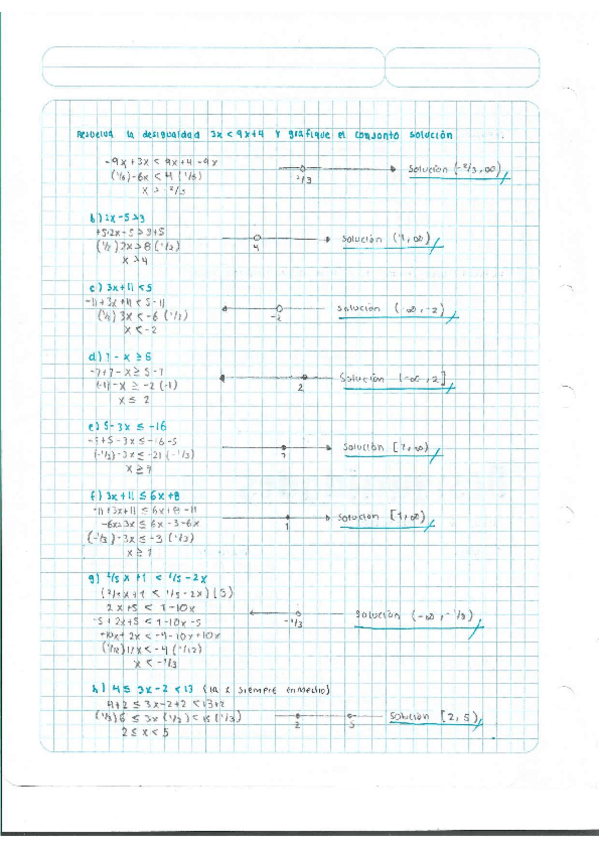 Resuelva la desigualdad 3x < 9x+4 y grafique el conjunto solución
-9x + 3x < 9x+4 -9x
(1/6) -6x < 4 (1/6)
x > -2/3
-2/3
Solución (-2/3, ∞)
b) 2x -5 > 3
+5 2x -5 > 3+5
(1/2) 2x > 8 (1/2)
x > 4
4
Solución (4, ∞)
c) 3x+11 < 5
-11 + 3x +11 < 5 -11
(1/3) 3x < -6 (1/3)
x < -2
-2
Solución (-∞, -2)
d) 7 - x ≥ 5
-7+7 - x ≥ 5 -7
(-1) -x ≥ -2 (-1)
x ≤ 2
2
Solución (-∞, 2]
e) 5 - 3x ≤ -16
-5+5 -3x ≤ -16 -5
(-1/3) -3x ≤ -21 (-1/3)
x ≥ 7
7
Solución [7, ∞)
f) 3x + 11 ≤ 6x +8
-11 +3x+11 ≤ 6x+8 -11
-6x+3x ≤ 6x -3 -6x
(-1/3) -3x ≤ -3 (1/3)
x ≥ 1
1
Solución [1, ∞)
g) 2/5 x +1 < 1/5 - 2x
(2/5 x +1 < 1/5 -2x) (5)
2x +5 < 1 -10x
-5 + 2x+5 < 1 -10x -5
+10x+ 2x < -4 -10x +10x
(1/12) 12x < -4 (1/12)
x < -1/3
-1/3
Solución (-∞, -1/3)
h) 4 ≤ 3x -2 < 13 (la x siempre enmedio)
4+2 ≤ 3x -2+2 < 13+2
(1/3) 6 ≤ 3x (1/3) < 15 (1/3)
2 ≤ x < 5
2 5
Solución [2, 5)